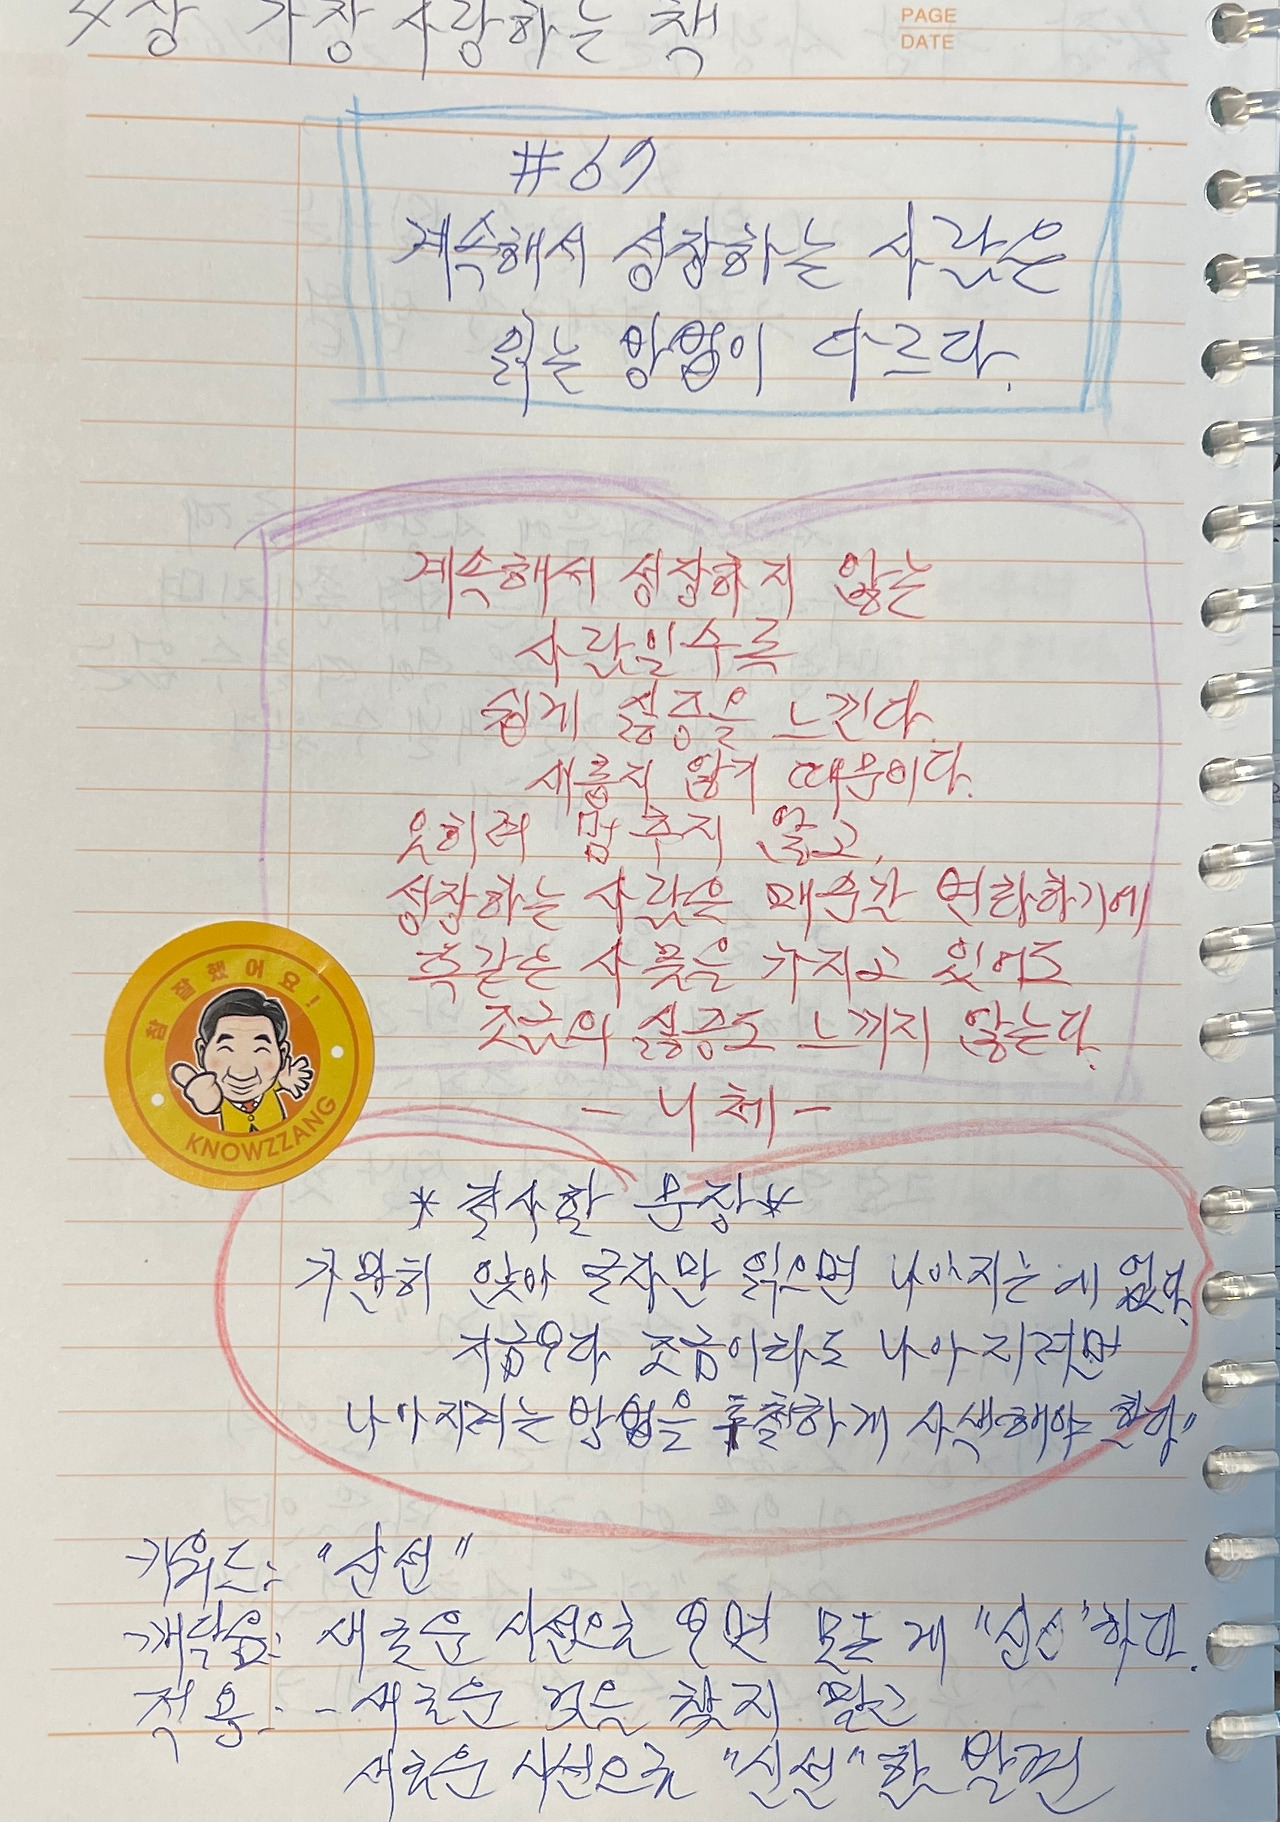 가장 사랑하는 책
PAGE
DATE
#67
계속해서 성장하는 사람은
읽는 방법이 다르다.
계속해서 성장하지 않는
사람일수록
쉽게 싫증을 느낀다.
새롭지 않기 때문이다.
오히려 멈추지 않고,
성장하는 사람은 매순간 변화하기에
똑같은 사물을 가지고 있어도
조금의 싫증도 느끼지 않는다.
- 니체 -
참 잘했어요!
KNOWZZANG
*필사할 문장*
가만히 앉아 글자만 읽으면 나아지는 게 없다.
지금보다 조금이라도 나아지려면
나아지려는 방법을 투철하게 사색해야 한다"
키워드: "신선"
깨달음: 새로운 시선으로 보면 모든 게 "신선"하다.
적용: - 새로운 것을 찾지 말고
새로운 시선으로 "신선"한 발견